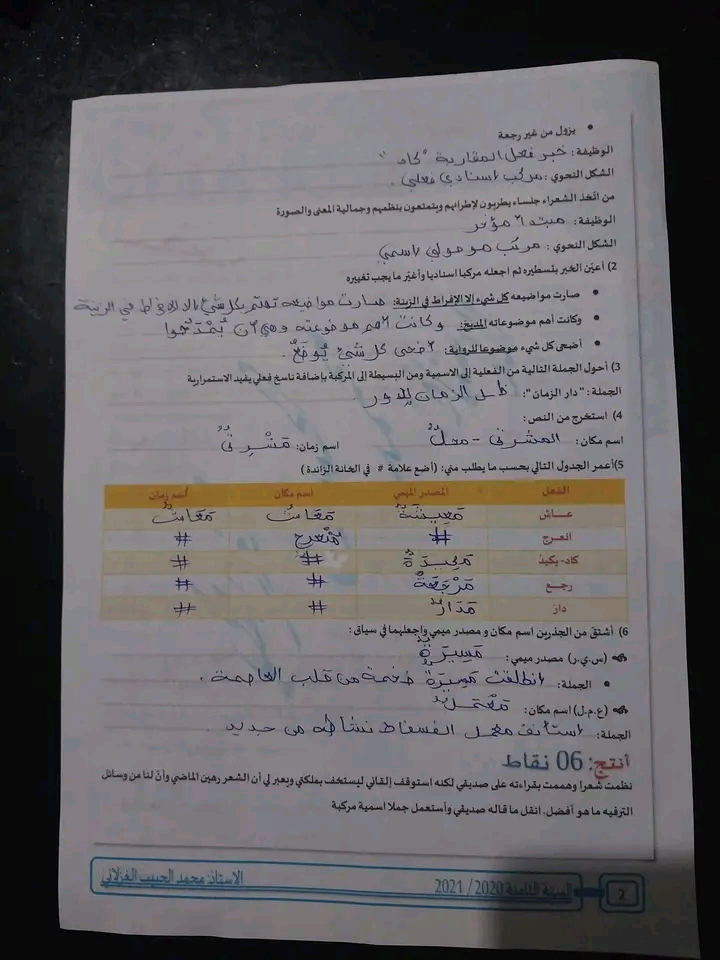 • يزول من غير رجعة
الوظيفة: خبر فعل المقاربة "كاد"
الشكل النحوي: مركب اسنادي فعلي.
من اتخذ الشعراء جلساء يطربون لإطرائهم ويتمتعون بنظمهم وجمالية المعنى والصورة
الوظيفة: مبتدأ مؤخر
الشكل النحوي: مركب موصولي اسمي
2) أعين الخبر بتسطيره ثم اجعله مركبا اسناديا وأغير ما يجب تغييره
• صارت مواضيعه كل شيء إلا الإفراط في الزينة: صارت مواضيعه تهتم بكل شيء إلا الافراط في الزينة
• وكانت أهم موضوعاته المديح: وكانت أهم موضوعته وهي أن يمدحوا
• أضحى كل شيء موضوعا للرواية: أضحى كل شيء يُوضَعُ.
3) أحول الجملة التالية من الفعلية إلى الاسمية ومن البسيطة إلى المركبة بإضافة ناسخ فعلي يفيد الاستمرارية
الجملة: "دار الزمان": ظل الزمان يدور
4) استخرج من النص:
اسم مكان: المشرق - محلٌّ اسم زمان: مَشْرِقٌ
5) أعمر الجدول التالي بحسب ما يطلب مني: (أضع علامة # في الخانة الزائدة)
الفعل المصدر الميمي اسم مكان اسم زمان
عاش مَعِيشَةٌ مَعَاشٌ مَعَاشٌ
انعرج # مُنْعَرج #
كاد- يكيد مَكِيدَةٌ # #
رجع مَرْجَعَةٌ # #
دار مَدَارٌ # #
6) أشتق من الجذرين اسم مكان و مصدر ميمي واجعلهما في سياق:
(س.ي.ر) مصدر ميمي: مَسِيرَةٌ
• الجملة: انطلقت مَسِيرَةٌ ضخمة من قلب العاصمة.
(ع.م.ل) اسم مكان: مَعْمَلٌ
الجملة: استأنف معمل الفسفاط نشاطه من جديد.
أنتج: 06 نقاط
نظمت شعرا وهممت بقراءته على صديقي لكنه استوقف إلقائي ليستخف بملكتي ويعبر لي أن الشعر رهين الماضي وأنّ لنا من وسائل
الترفيه ما هو أفضل. انقل ما قاله صديقي وأستعمل جملا اسمية مركبة
2 السنة الثامنة 2020/ 2021 الأستاذ محمد الحبيب الغزلاني